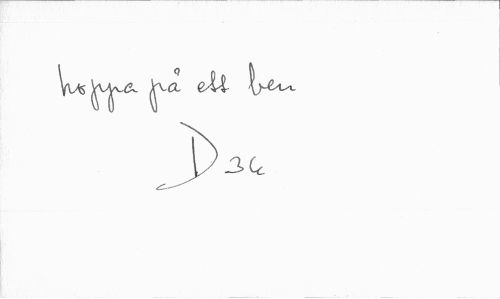 hoppa på ett ben
D 34